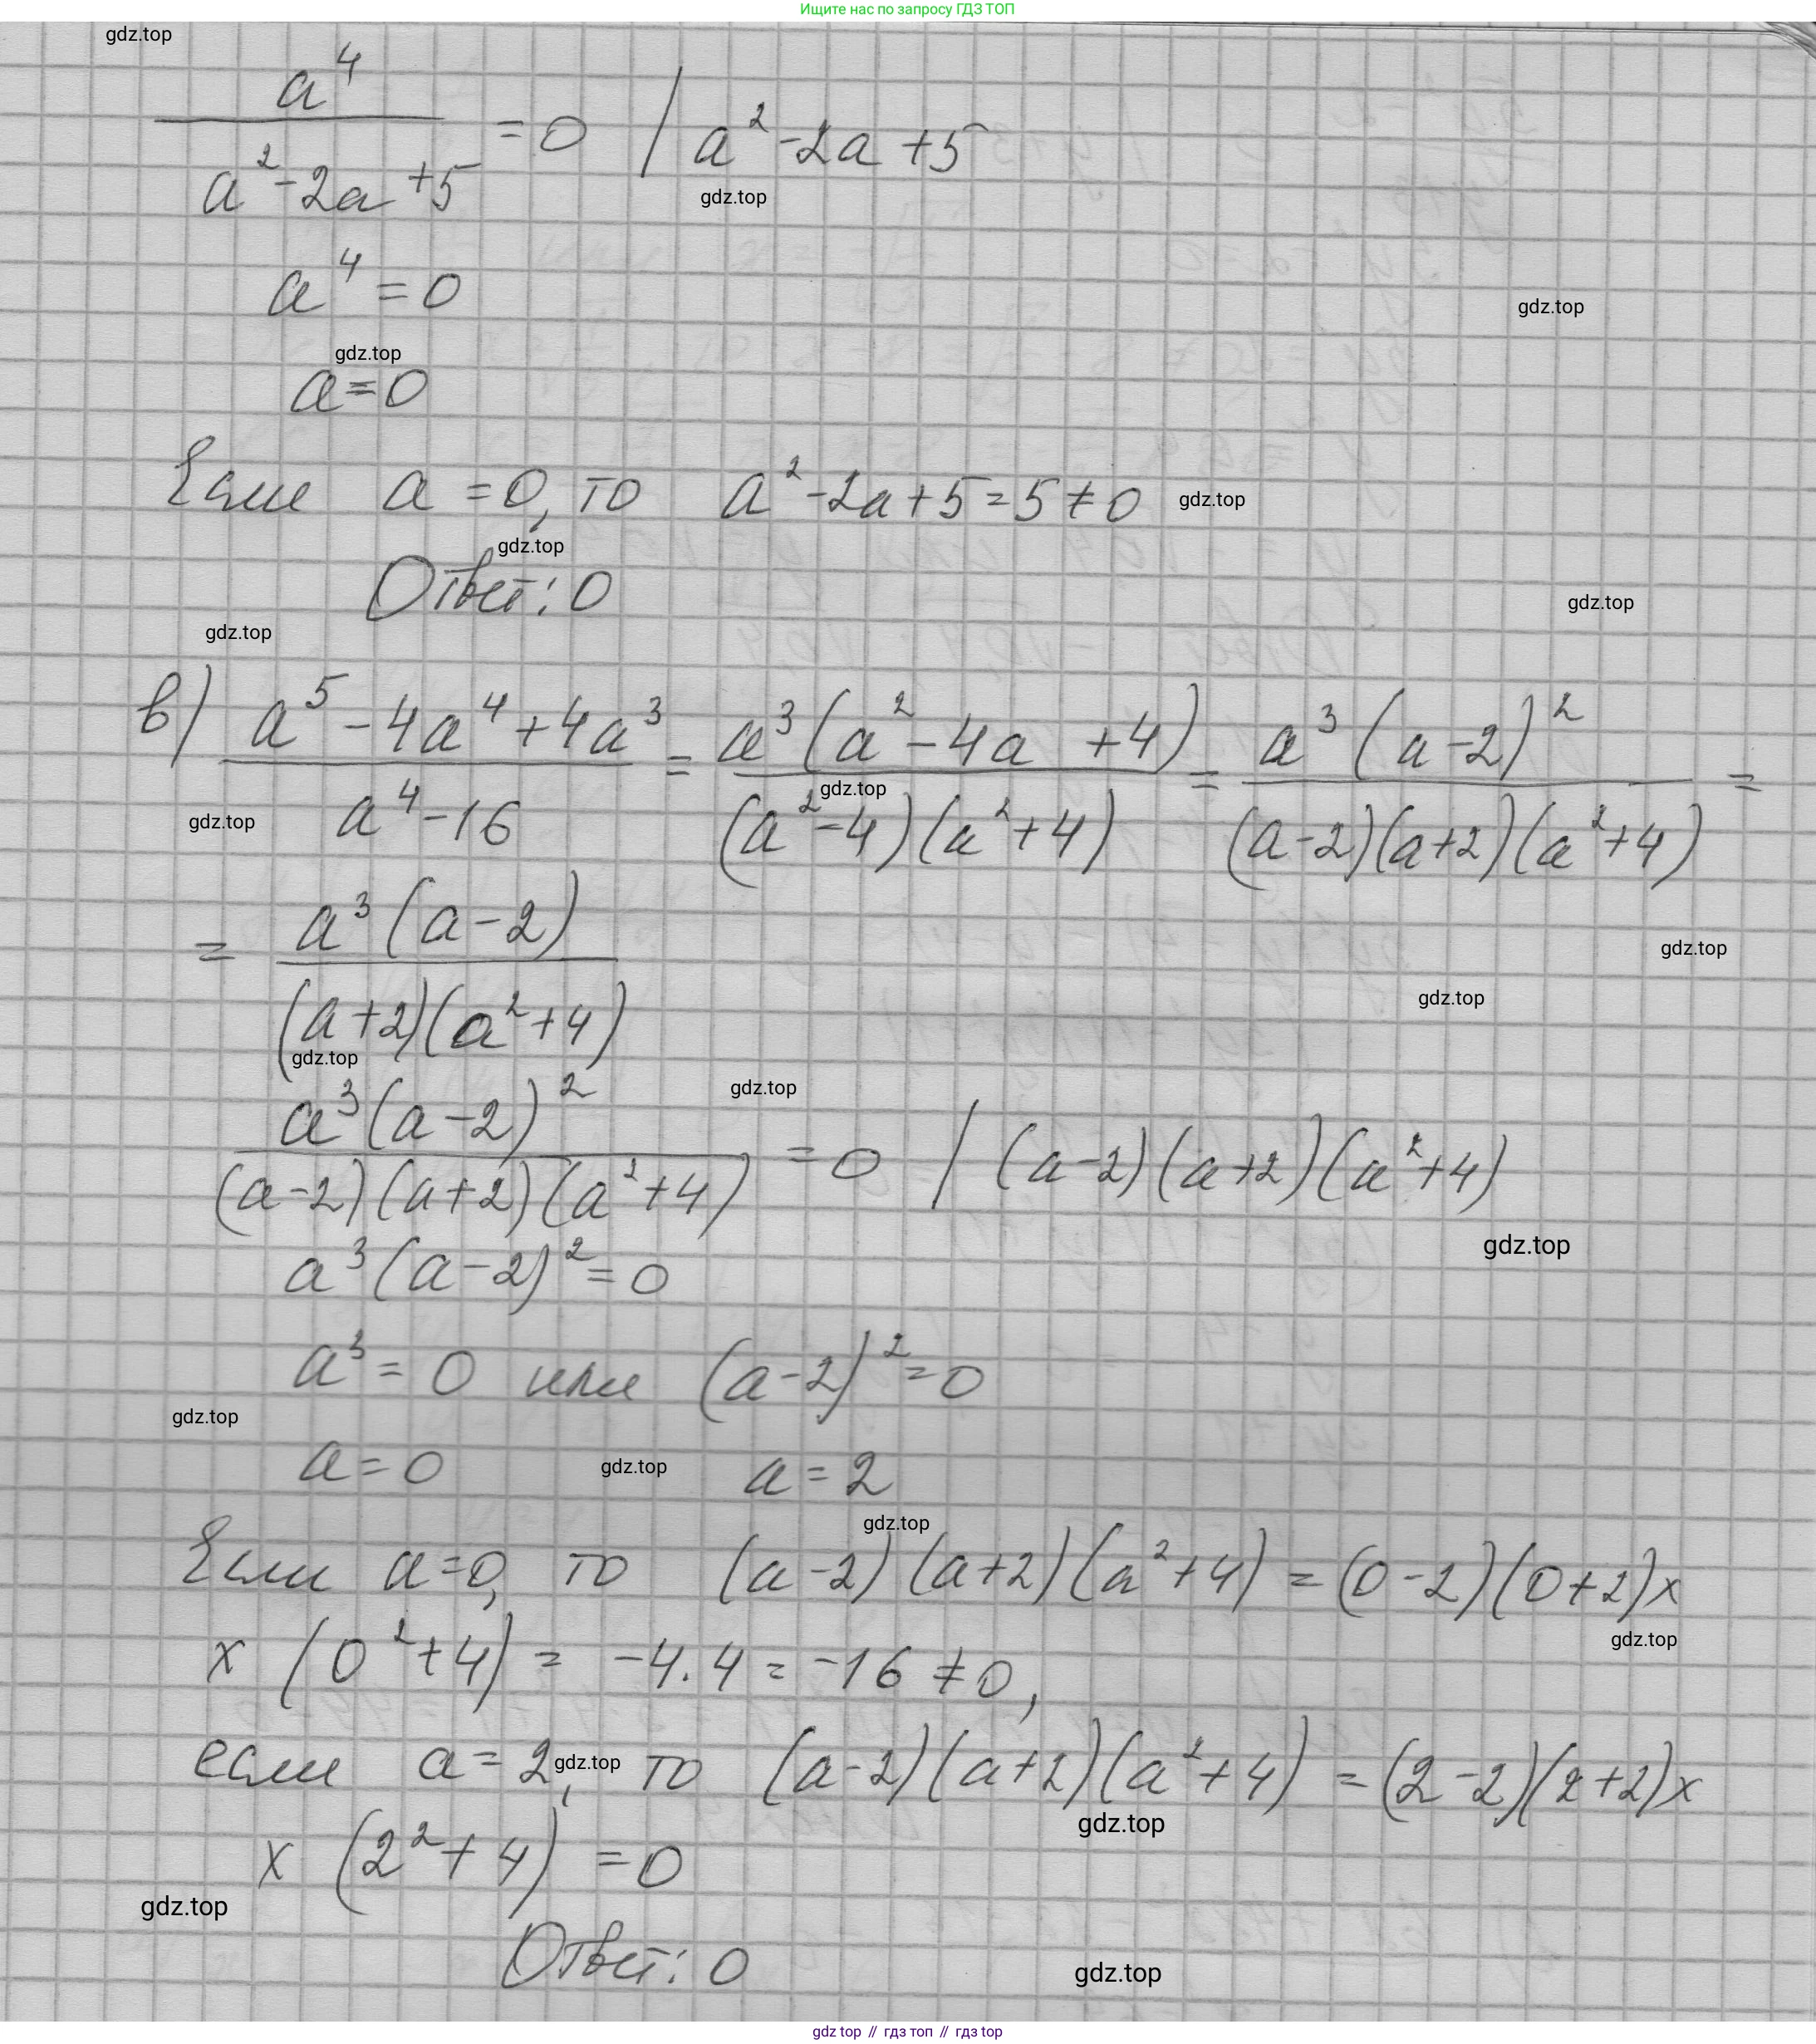 Ищите нас по запросу ГДЗ ТОП
gdz.top
a⁴ / (a² - 2a + 5) = 0 | a² - 2a + 5
gdz.top
a⁴ = 0
gdz.top
gdz.top
a = 0
Если a = 0, то a² - 2a + 5 = 5 ≠ 0
gdz.top
gdz.top
Ответ: 0
gdz.top
gdz.top
в) (a⁵ - 4a⁴ + 4a³) / (a⁴ - 16) = a³(a² - 4a + 4) / ((a² - 4)(a² + 4)) = a³(a - 2)² / ((a - 2)(a + 2)(a² + 4)) =
gdz.top
gdz.top
= a³(a - 2) / ((a + 2)(a² + 4))
gdz.top
gdz.top
gdz.top
gdz.top
a³(a - 2)² / ((a - 2)(a + 2)(a² + 4)) = 0 | (a - 2)(a + 2)(a² + 4)
gdz.top
a³(a - 2)² = 0
a³ = 0 или (a - 2)² = 0
gdz.top
a = 0 a = 2
gdz.top
gdz.top
Если a = 0, то (a - 2)(a + 2)(a² + 4) = (0 - 2)(0 + 2)x
gdz.top
x (0² + 4) = -4 · 4 = -16 ≠ 0,
если a = 2, то (a - 2)(a + 2)(a² + 4) = (2 - 2)(2 + 2)x
gdz.top
gdz.top
x (2² + 4) = 0
gdz.top
Ответ: 0
gdz.top
gdz top // гдз топ // gdz top